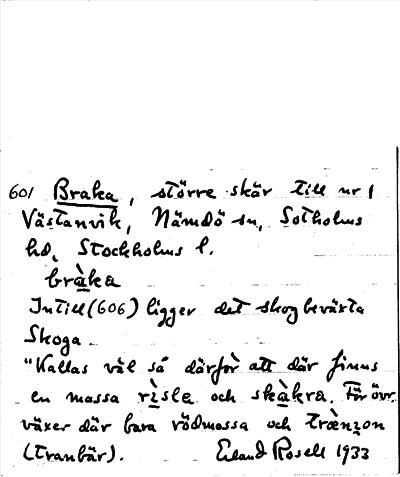 601 Braka, större skär till nr 1
Västanvik, Nämdö sn, Sotholms
hd, Stockholms l.
bràka
Intill (606) ligger det skogbeväxta
Skoga.
"Kallas väl så därför att där finns
en massa rìsla och skàkra. För övr.
växer där bara vödmossa och trànzon
(tranbär). Erland Rosell 1933